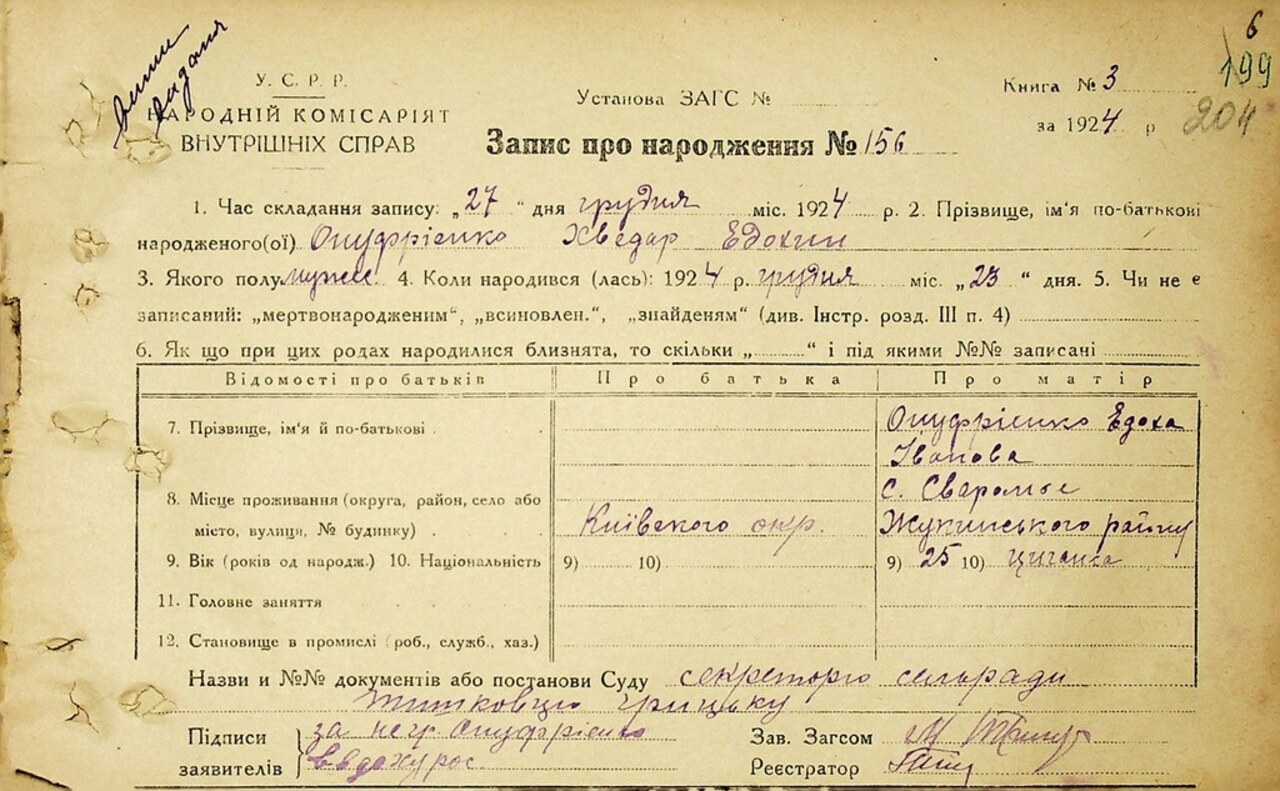 6
199
204
У. С. Р. Р.
НАРОДНІЙ КОМІСАРІЯТ
ВНУТРІШНІХ СПРАВ
Установа ЗАГС №
Книга № 3
за 1924 р
Запис про народження № 156
1. Час складання запису: „27“ дня грудня міс. 1924 р. 2. Прізвище, ім'я по-батькові
народженого(ої) Онуфрієнко Хведар Едохин
3. Якого полу мужс. 4. Коли народився (лась): 1924 р. грудня міс. „23“ дня. 5. Чи не є
записаний: „мертвонародженим“, „всиновлен.“, „знайденям“ (див. Інстр. розд. III п. 4)
6. Як що при цих родах народилися близнята, то скільки „ “ і під якими №№ записані
Відомості про батьків Про батька Про матір
7. Прізвище, ім'я й по-батькові Онуфрієнко Едоха
Іванова
8. Місце проживання (округа, район, село або с. Сваромье
місто, вулиця, № будинку) Київского окр. Жукинського району
9. Вік (років од народж.) 10. Національність 9) 10) 9) 25 10) циганка
11. Головне заняття
12. Становище в промислі (роб., служб., хаз.)
Назви и №№ документів або постанови Суду секреторю сельради
Титковцю Грицьку
Підписи за негр. Онуфрієнко Зав. Загсом
заявителів Реєстратор